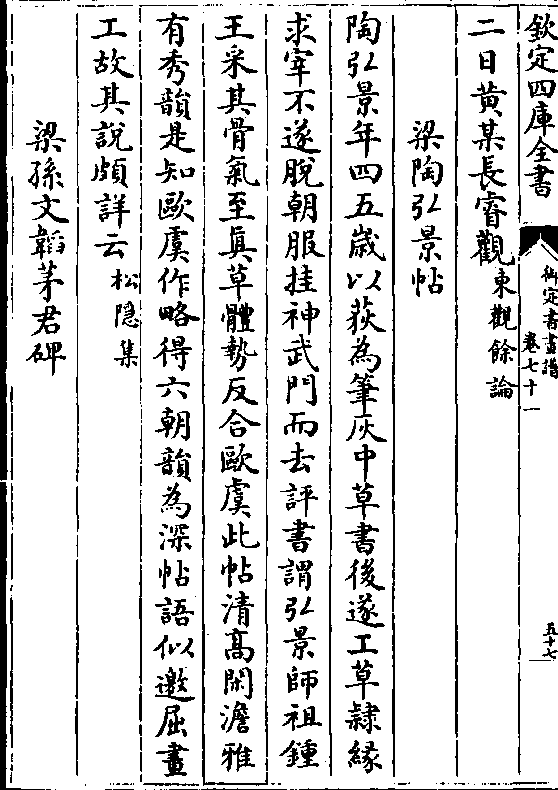 欽定四庫全書
御定書畫譜
卷七十一
五十七
二日黃某長睿觀東觀餘論
梁陶弘景帖
陶弘景年四五歲以荻為筆灰中草書後遂工草隸緣
求宰不遂脫朝服挂神武門而去評書謂弘景師祖鍾
王采其骨氣至真草體勢反合歐虞此帖清髙閑澹雅
有秀韻是知歐虞作略得六朝韻為深帖語似邀屈畫
工故其說頗詳云松隱集
梁孫文韜茅君碑